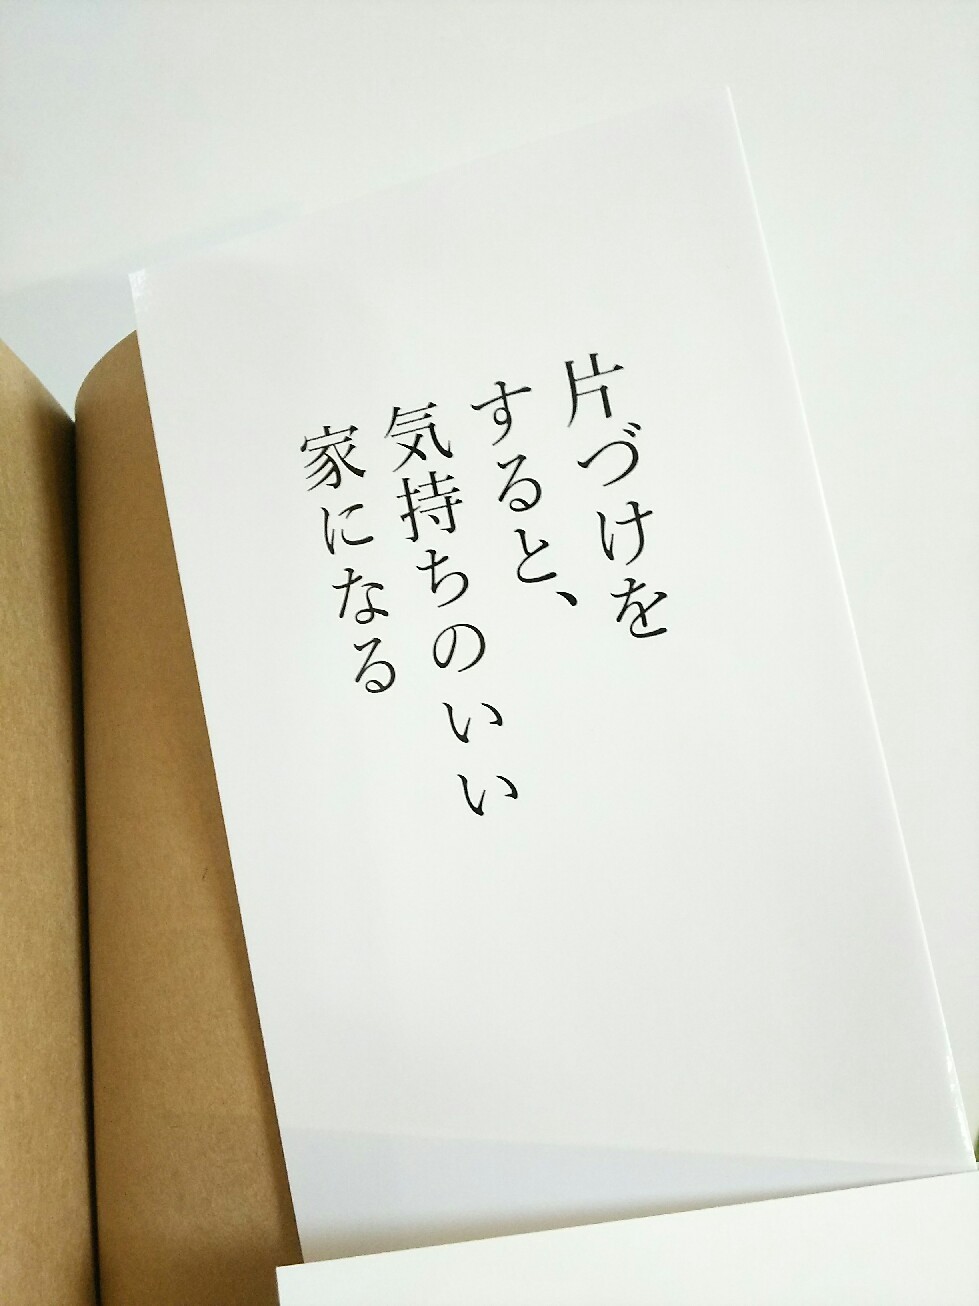 片づけを
すると、
気持ちのいい
家になる